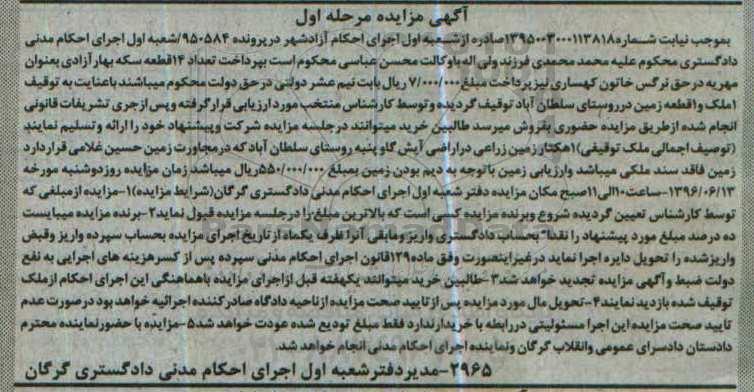 آگهی مزایده مرحله اول
بموجب نیابت شماره۱۳۹۵۰۰۳۰۰۰۱۱۳۸۱۸صادره ازشعبه اول اجرای احکام آزادشهر درپرونده ۹۵۰۵۸۴/شعبه اول اجرای احکام مدنی
دادگستری محکوم علیه محمد محمدی فرزند ولی اله باوکالت محسن عباسی محکوم است بپرداخت تعداد ۱۴قطعه سکه بهار آزادی بعنوان
مهریه درحق نرگس خاتون کهساری نیز پرداخت مبلغ ۷/۰۰۰/۰۰۰ ریال بابت نیم عشر دولتی درحق دولت محکوم میباشند باعنایت به توقیف
۱ملک و۱قطعه زمین درروستای سلطان آباد توقیف گردیده وتوسط کارشناس منتخب مورد ارزیابی قرارگرفته وپس ازجری تشریفات قانونی
انجام شده ازطریق مزایده حضوری بفروش میرسد طالبین خرید میتوانند درجلسه مزایده شرکت وپیشنهاد خود را ارائه وتسلیم نمایند
(توصیف اجمالی ملک توقیفی)۱هکتارزمین زراعی دراراضی آیش گلو پنبه روستای سلطان آباد که درمجاورت زمین حسین غلامی قراردارد
زمین فاقد سند ملکی میباشد وارزیابی زمین باتوجه به دیم بودن زمین بمبلغ ۵۵۰/۰۰۰/۰۰۰ریال میباشد زمان مزایده روزدوشنبه مورخه
۱۳۹۶/۰۶/۱۳-ساعت۱۰الی۱۱صبح مکان مزایده دفتر شعبه اول اجرای احکام مدنی دادگستری گرگان(شرایط مزایده)۱-مزایده ازمبلغی که
توسط کارشناس تعیین گردیده شروع وبرنده مزایده کسی است که بالاترین مبلغ را درجلسه مزایده قبول نماید۲-برنده مزایده میبایست
ده درصد مبلغ مورد پیشنهاد را نقدا" بحساب دادگستری واریز ومابقی آنرا ظرف یکماه از تاریخ اجرای مزایده بحساب سپرده واریز وقبض
واریزشده را تحویل دایره اجرا نماید درغیراینصورت وفق ماده۱۲۹قانون اجرای احکام مدنی سپرده پس از کسرهزینه های اجرایی به نفع
دولت ضبط وآگهی مزایده تجدید خواهد شد۳-طالبین خرید میتوانند یکهفته قبل ازاجرای مزایده باهماهنگی این اجرای احکام ازملک
توقیف شده بازدید نمایند۴-تحویل مال مورد مزایده پس ازتایید صحت مزایده ازناحیه دادگاه صادرکننده اجرائیه خواهد بود درصورت عدم
تایید صحت مزایده این اجرا مسئولیتی دررابطه با خریدارندارد فقط مبلغ تودیع شده عودت خواهد شد۵-مزایده با حضورنماینده محترم
دادستان دادسرای عمومی وانقلاب گرگان ونماینده اجرای احکام مدنی انجام خواهد شد.
۲۹۶۵-مدیر دفتر شعبه اول اجرای احکام مدنی دادگستری گرگان